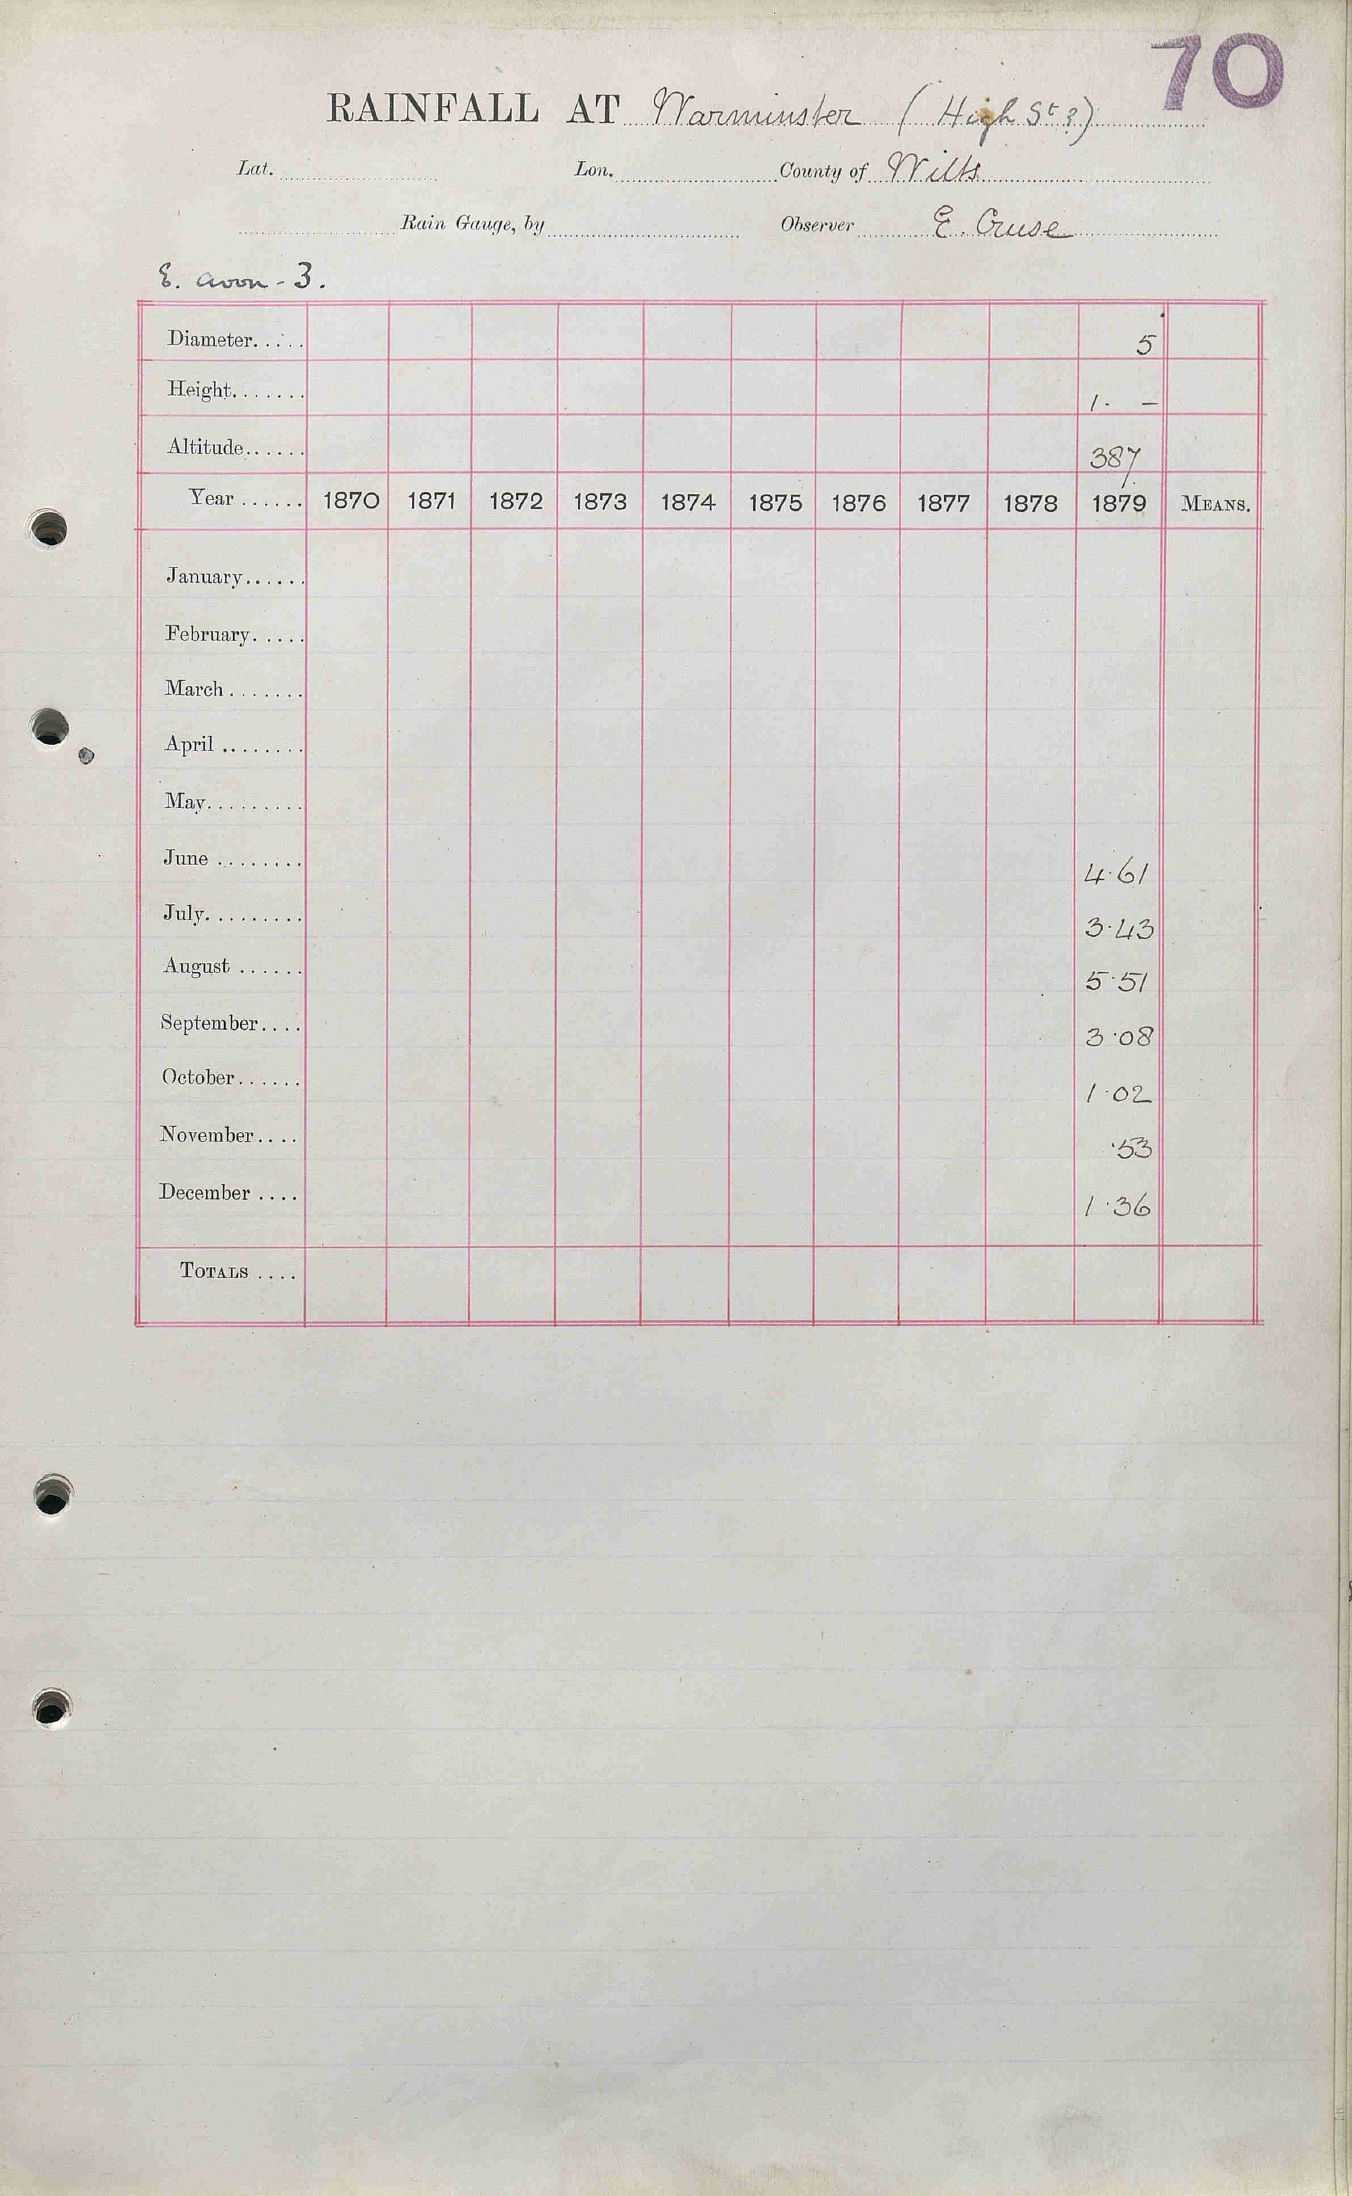 70
RAINFALL AT Warminster (High St ?)
Lat. Lon. County of Wilts
Rain Gauge, by Observer E. Cruse
E. Avon - 3.
Diameter...... 5
Height....... 1· —
Altitude...... 387
Year ...... 1870 1871 1872 1873 1874 1875 1876 1877 1878 1879 MEANS.
January......
February.....
March .......
April ........
May.........
June ........ 4·61
July......... 3·43
August ...... 5·51
September.... 3·08
October...... 1·02
November.... ·53
December .... 1·36
TOTALS ....